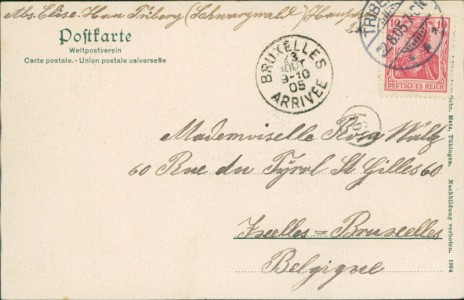 Abs. Elise Haas Triberg (Schwarzwald) Hauptst
Postkarte
Weltpostverein
Carte postale. - Union postale universelle
TRIBE
10 10
DEUTSCHES REICH
BRUXELLES
23
AOUT
9-10
05
ARRIVÉE
Mademoiselle Rosa Walz
60 Rue du Tyrol St Gilles 60
Ixelles = Bruxelles
Belgique
Metz, Tübingen. Nachbildung verboten. 1904